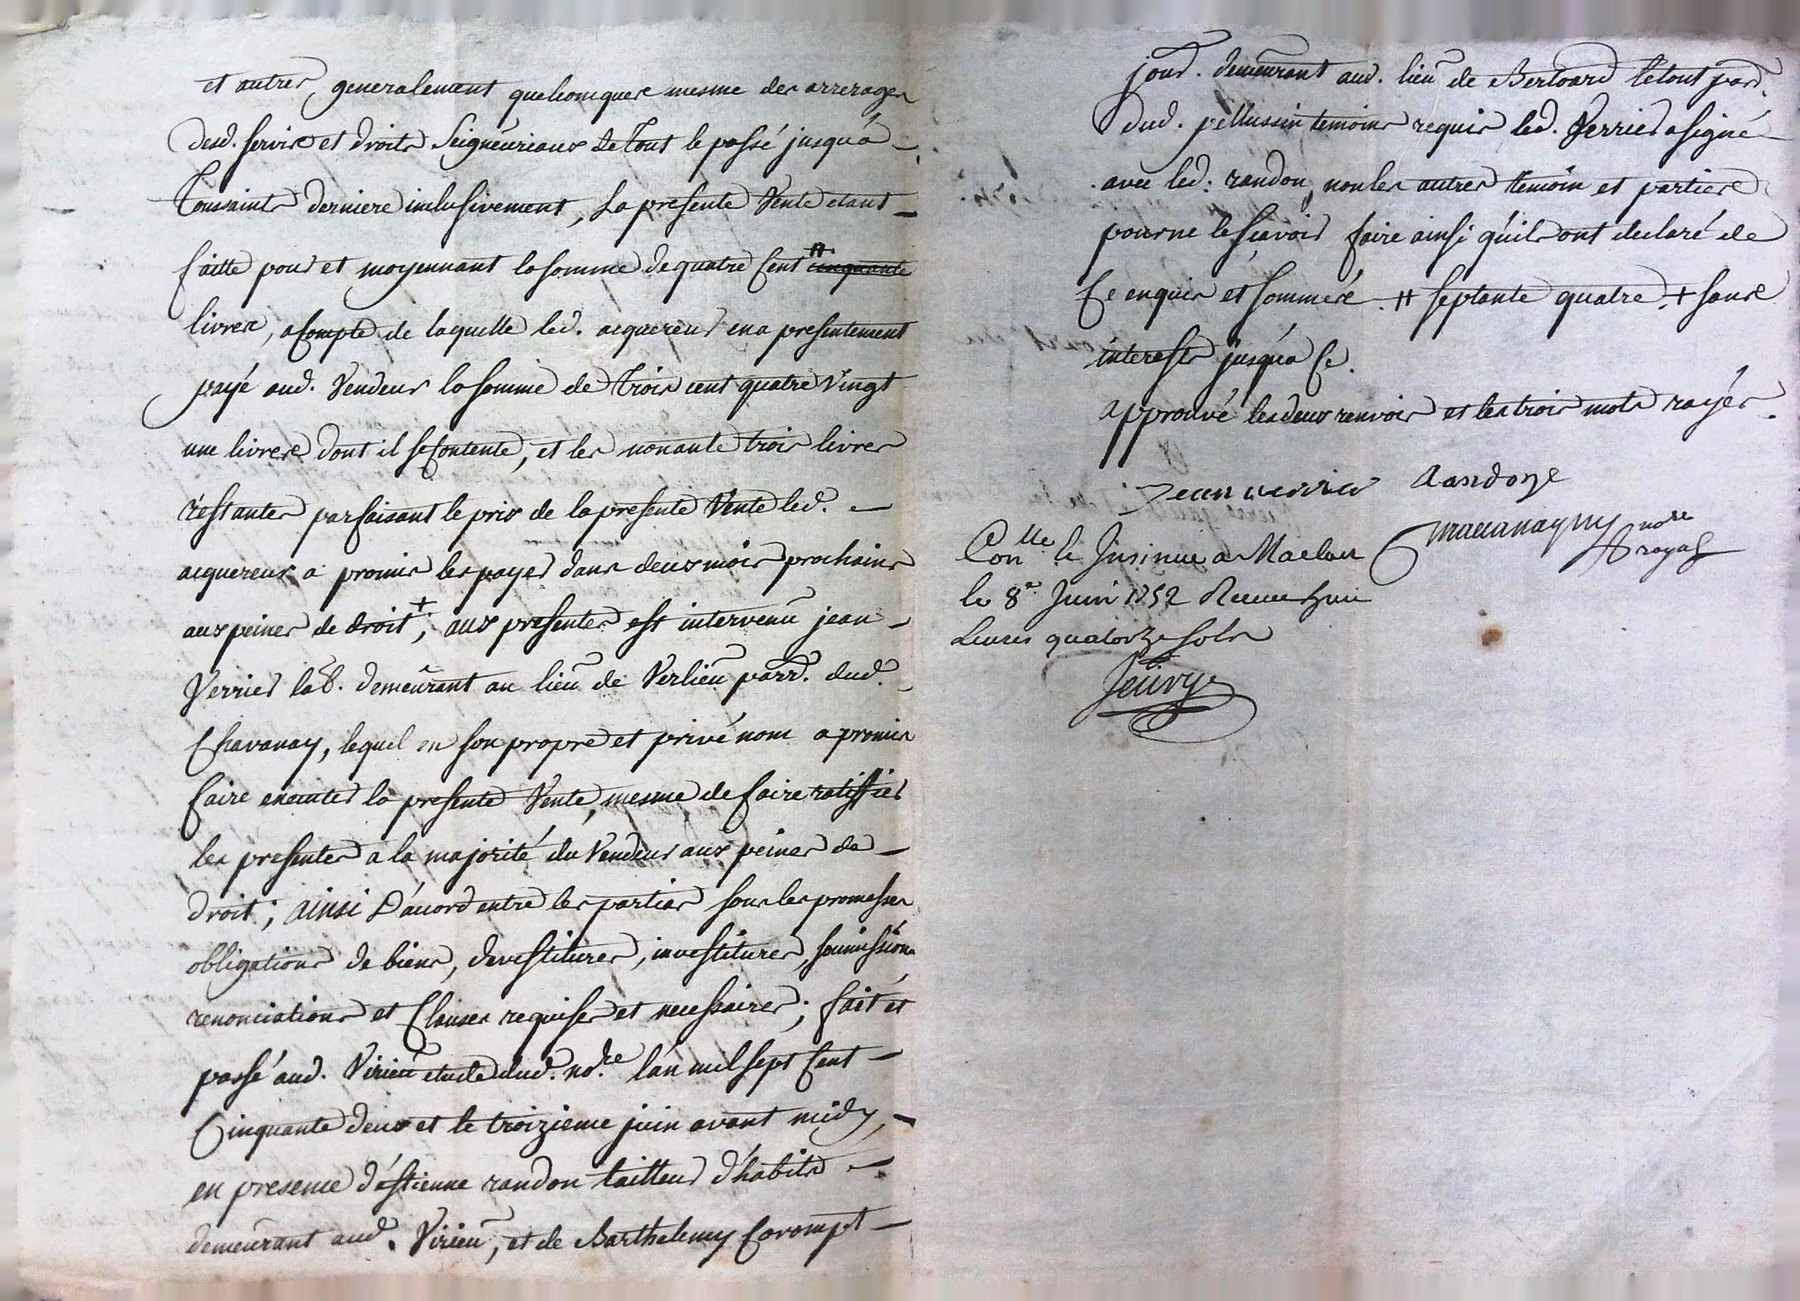 et autres generalement quelconques mesme des arrerages
desd. servis et droits seigneuriaux de tout le passé jusqu'à
Toussaints derniere inclusivement, La presente Vente etant
faitte pour et moyennant la somme de quatre Cent # cinquante
livres, acompte de laquelle led. acquereur en a presentement
payé aud. Vendeur la somme de trois cent quatre vingt
une livres dont il se Contente, et les nonante trois livres
restantes parfaisant le prix de la presente Vente led.
acquereur a promis les payer dans deux mois prochains
aux peines de droit +, aux presentes est intervenu jean
Verrier lab. demeurant au lieu de Verlieu parr. dud.
Chavanay, lequel en son propre et privé nom a promis
faire executer la presente Vente, mesme de faire ratiffier
les presentes a la majorité du Vendeur aux peines de
droit; ainsi D'acord entre les parties sous les promesses
obligations de biens, devestitures, investitures, soumissions
renonciations et Clauses requises et necessaires; fait et
passé aud. Virieu etude dud. nore. l'an mil sept Cent
Cinquante deux et le troizieme juin avant midy,
en presence d'estienne randon tailleur d'habits
demeurant aud. Virieu, et de Barthelemy Corompt
jour. demeurant aud. lieu de Bertoard le tout parr.
dud. pellussin temoins requis led. Verrier a signé
avec led: randon, non les autres temoin et parties
pour ne le sçavoir faire ainsi qu'ils ont declaré de
Ce enquis et sommés. # septante quatre, + sans
interests jusqu'a Ce.
approuvé les deux renvois et les trois mots rayés.
Jean verrier Randon
nore royal
Conlle. & Insinué a Maclas
le 8e. Juin 1752 Receu huit
Livres quatorze sols